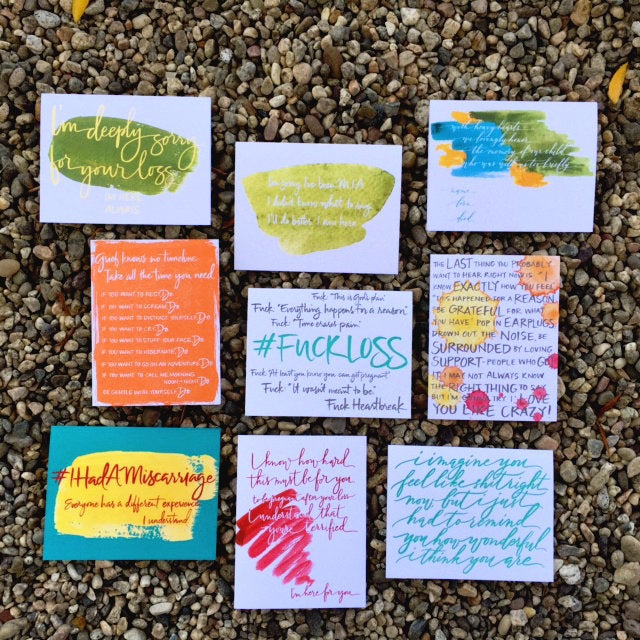 I'm deeply sorry
for your loss
I'M HERE
ALWAYS
I'm sorry I've been M.I.A.
I didn't know what to say.
I'll do better. I am here.
your heavy hearts
the memory of your child
who was with us so briefly
love
dad
Grief knows no timeline.
Take all the time you need
IF YOU WANT TO REST, Do
IF YOU WANT TO SCREAM, Do
IF YOU WANT TO DISTRACT YOURSELF, Do
IF YOU WANT TO CRY, Do
IF YOU WANT TO STUFF YOUR FACE, Do
IF YOU WANT TO HIBERNATE, Do
IF YOU WANT TO GO ON AN ADVENTURE, Do
IF YOU WANT TO CALL ME MORNING,
NOON & NIGHT, Do
BE GENTLE WITH YOURSELF, Do
Fuck "This is God's plan"
Fuck "Everything happens for a reason"
Fuck "Time erases pain"
#FUCKLOSS
Fuck "At least you know you can get pregnant"
Fuck "It wasn't meant to be"
Fuck Heartbreak
THE LAST THING YOU PROBABLY
WANT TO HEAR RIGHT NOW IS "I
KNOW EXACTLY HOW YOU FEEL,
IT HAPPENED FOR A REASON,
BE GRATEFUL FOR WHAT
YOU HAVE." POP IN EARPLUGS
DROWN OUT THE NOISE, BE
SURROUNDED BY LOVING
SUPPORT - PEOPLE WHO GET
IT. I MAY NOT ALWAYS KNOW
THE RIGHT THING TO SAY
BUT I'M GONNA TRY. I LOVE
YOU LIKE CRAZY!
#IHadAMiscarriage
Everyone has a different experience
I understand.
I know how hard
this must be for you
to be pregnant again after you loss
I understand that
you're terrified
I'm here for you
i imagine you
feel like shit right
now, but i just
had to remind
you how wonderful
i think you are